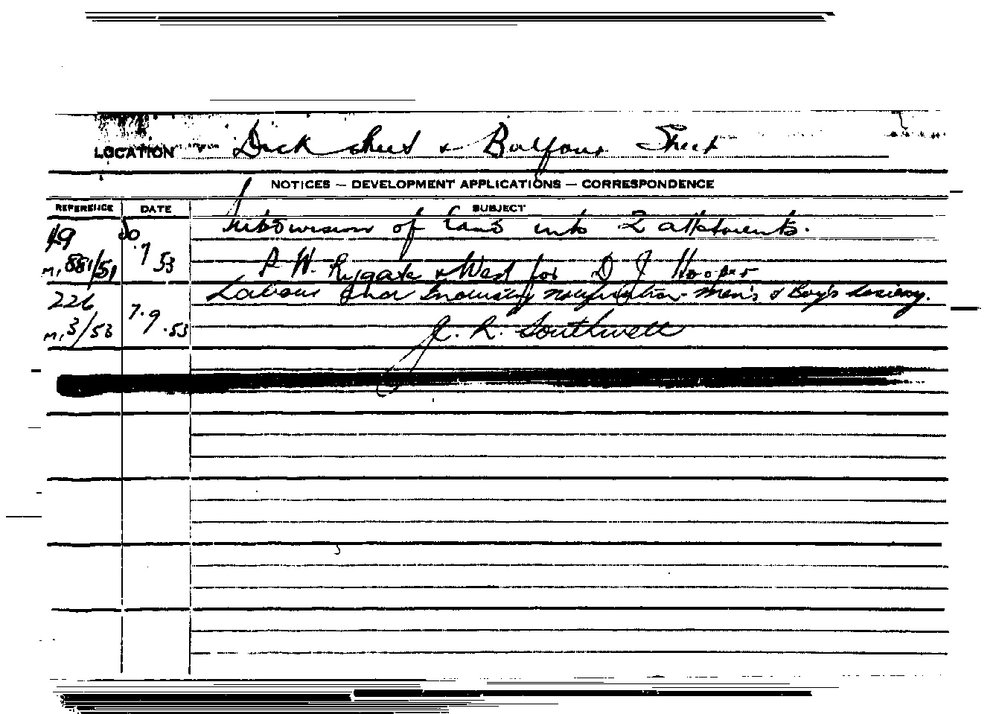 LOCATION Dick Street & Balfour Street
NOTICES — DEVELOPMENT APPLICATIONS — CORRESPONDENCE
REFERENCE DATE SUBJECT
49 Subdivision of land into 2 allotments.
M, 881/51 .7 53 P. W. Rygate & West for D J Hooper
226 Labour and Industry notification - men's & Boy's hosiery.
M, 3/53 7.9.53 J. R. Southwell